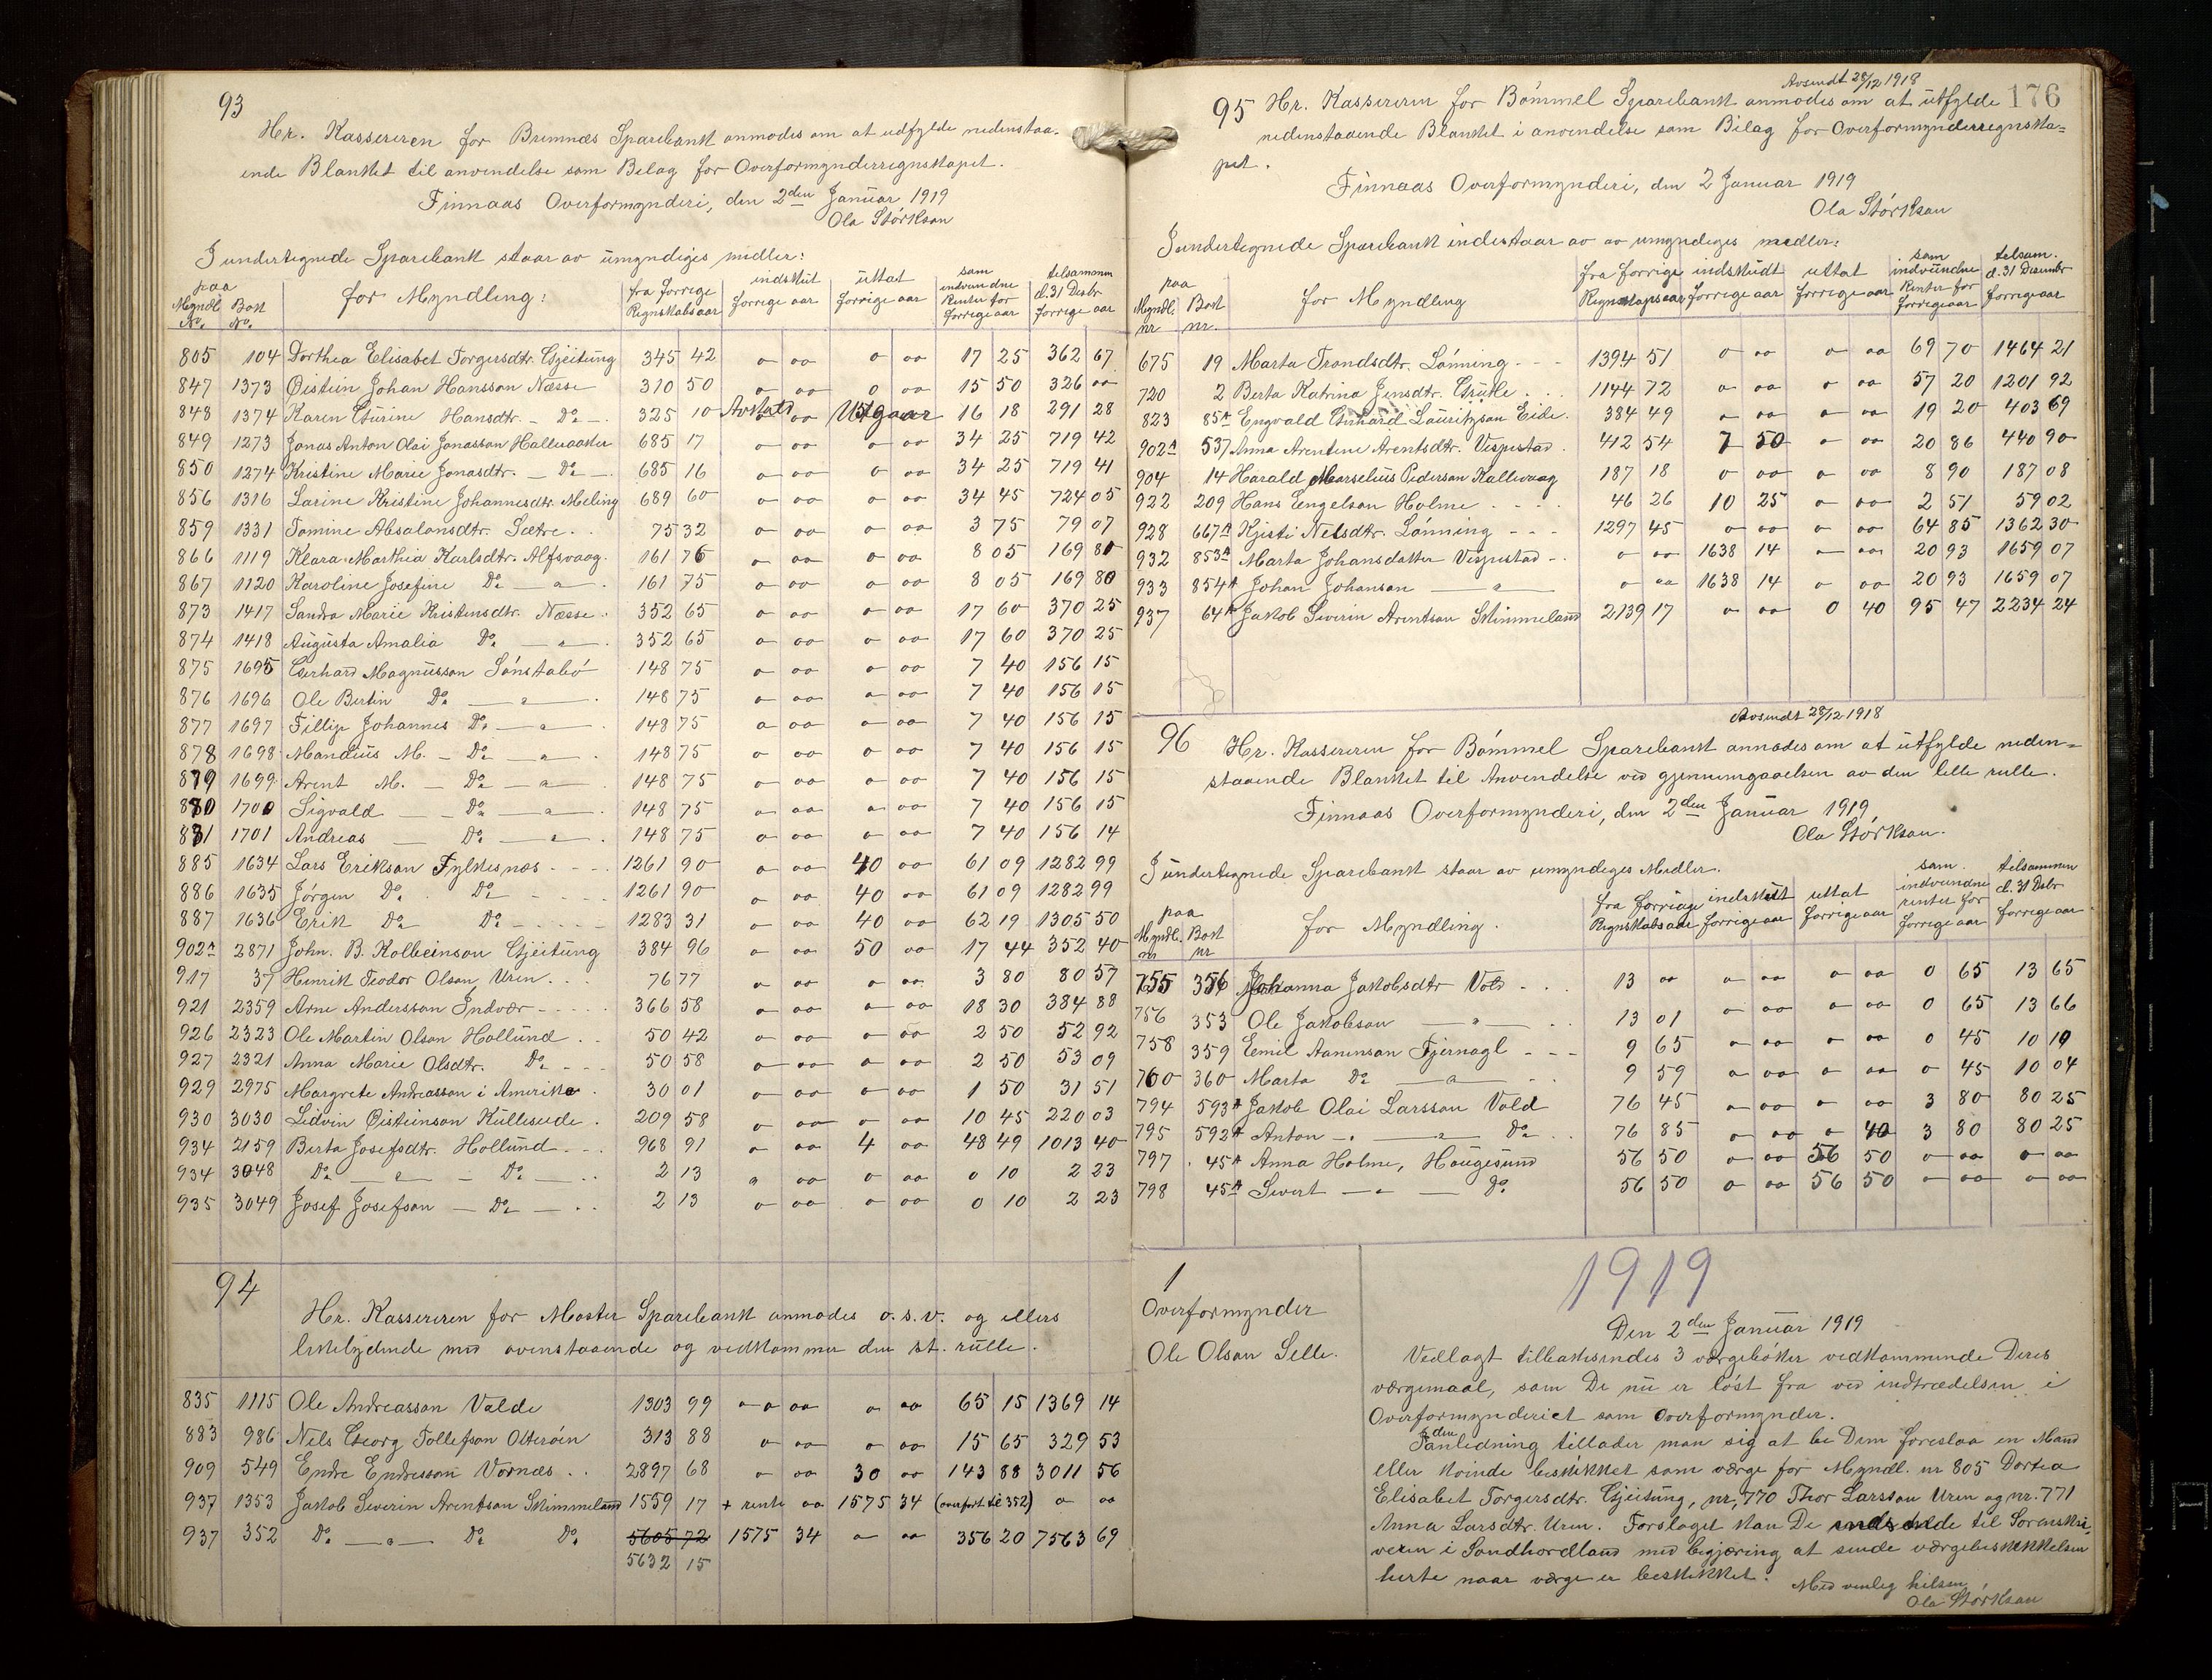 93
Hr. Kassereren for Bremnæs Sparebank anmodes om at udfylde nedenstaa-
ende Blanket til anvendelse som Bilag for Overformynderregnskapet.
Finnaas Overformynderi, den 2den Januar 1919
Ola Størkson
I undertegnede Sparebank staar av umyndiges midler:
paa Myndl. No. Bok No. for Myndling: fra forrige Regnskabsaar indskut forrige aar uttat forrige aar sam indvundne Renter for forrige aar tilsammen d. 31 Desbr forrige aar
805 104 Dorthea Elisabet Torgersdtr. Gjeitung 345 42 o oo o oo 17 25 362 67
847 1373 Øistein Johan Hansson Næsse 310 50 o oo o oo 15 50 326 oo
848 1374 Karen Gurine Hansdtr. - Do - 325 10 Utgaar 16 18 291 28
849 1273 Jonas Anton Olai Jonasson Halleraaker 685 17 o oo o oo 34 25 719 42
850 1274 Kristine Marie Jonasdtr. - Do - 685 16 o oo o oo 34 25 719 41
856 1316 Larine Kristine Johannesdtr. Meling 689 60 o oo o oo 34 45 724 05
859 1331 Tomine Absalonsdtr. Sætre 75 32 o oo o oo 3 75 79 07
866 1119 Klara Marthia Karlsdtr. Alfsvaag. 161 76 o oo o oo 8 05 169 81
867 1120 Karoline Josefine Do " 161 75 o oo o oo 8 05 169 80
873 1417 Sandra Marie Kristensdtr. Næsse 352 65 o oo o oo 17 60 370 25
874 1418 Augusta Amalia Do " 352 65 o oo o oo 17 60 370 25
875 1695 Gerhard Magnusson Sønstabø 148 75 o oo o oo 7 40 156 15
876 1696 Ole Bertin Do " 148 75 o oo o oo 7 40 156 15
877 1697 Fillip Johannes Do " 148 75 o oo o oo 7 40 156 15
878 1698 Mandius M. - Do " 148 75 o oo o oo 7 40 156 15
879 1699 Arent M. - Do " 148 75 o oo o oo 7 40 156 15
880 1700 Sigvald - Do " 148 75 o oo o oo 7 40 156 15
881 1701 Andreas - Do " 148 75 o oo o oo 7 40 156 14
885 1634 Lars Erikson Fylkesnes 1261 90 o oo 40 oo 61 09 1282 99
886 1635 Jørgen Do Do 1261 90 o oo 40 oo 61 09 1282 99
887 1636 Erik Do Do 1283 31 o oo 40 oo 62 19 1305 50
902a 2871 John. B. Kolbeinson Gjeitung 384 96 o oo 50 oo 17 44 352 40
917 37 Henrik Teodor Olson Uren 76 77 o oo o oo 3 80 80 57
921 2359 Arne Andersson Indvær 366 58 o oo o oo 18 30 384 88
926 2323 Ole Martin Olson Hollund 50 42 o oo o oo 2 50 52 92
927 2321 Anna Marie Olsdtr. Do 50 58 o oo o oo 2 50 53 09
929 2975 Margrete Andreasson i Amerika 30 01 o oo o oo 1 50 31 51
930 3030 Lidvin Øisteinson Kulleseide 209 58 o oo o oo 10 45 220 03
934 2159 Berta Josefsdtr. Hollund 968 91 o oo 4 oo 48 49 1013 40
934 3048 Do " - Do 2 13 o oo o oo 0 10 2 23
935 3049 Josef Josefson - Do - 2 13 o oo o oo 0 10 2 23
94
Hr. Kassereren for Moster Sparebank anmodes o.s.v. og ellers
likelydende med ovenstaaende og vedkommer den st. rulle.
835 1115 Ole Andreasson Valde 1303 99 o oo o oo 65 15 1369 14
883 986 Nels Georg Tollefson Otterøen 313 88 o oo o oo 15 65 329 53
909 549 Endre Endresson Vornæs 2897 68 o oo 30 oo 143 88 3011 56
937 1353 Jakob Severin Arentson Skimmeland 1559 17 + rente oo 1575 34 (overført til 352) o oo
937 352 Do " Do Do 5605 72 1575 34 o oo 356 20 7563 69
5632 15
Avsendt 28/12 1918
176
95 Hr. Kassereren for Bømmel Sparebank anmodes om at utfylde
nedenstaaende Blanket i anvendelse som Bilag for Overformynderregnska=
pet.
Finnaas Overformynderi, den 2 Januar 1919
Ola Størkson
I undertegnede Sparebank indestaar av av umyndiges midler:
paa Myndl. nr Bok nr. for Myndling fra forrige Regnskapsaar indskudt forrige aar uttat forrige aar sam indvundne Renter for forrige aar tilsam. d. 31 Desember forrige aar
675 19 Marta Trondsdtr. Lønning 1394 51 o oo o oo 69 70 1464 21
720 2 Berta Katrina Jensdtr. Grutle 1144 72 o oo o oo 57 20 1201 92
823 85A Engvald Gerhard Lauritzson Eide 384 49 o oo o oo 19 20 403 69
902a 537 Anna Arentine Arentsdtr. Vespestad 412 54 7 50 o oo 20 86 440 90
904 14 Harald Marselius Pederson Kallevaag 187 18 o oo o oo 8 90 187 08
922 209 Hans Engelson Holme 46 26 10 25 o oo 2 51 59 02
928 667A Kjisti Nelsdtr. Lønning 1297 45 o oo o oo 64 85 1362 30
932 853A Marta Johansdatter Vespestad o oo 1638 14 o oo 20 93 1659 07
933 854A Johan Johanson " o oo 1638 14 o oo 20 93 1659 07
937 64A Jakob Severin Arentson Skimmeland 2139 17 o oo 0 40 95 47 2234 24
Avsendt 28/12 1918
96 Hr. Kassereren for Bømmel Sparebank anmodes om at utfylde neden=
staaende Blanket til Anvendelse ved gjennemgaaelsen av den lelle rulle.
Finnaas Overformynderi, den 2den Januar 1919
Ola Størkson.
I undertegnede Sparebank staar av umyndiges Medler.
paa Myndl. nr Bok nr for Myndling. fra forriage Regnskabsaar indskutt forrige aar uttat forrige aar sam indvundne renter for forrige aar tilsammen d. 31 Desbr forrige aar
755 356 Johanna Jakobsdtr Vold 13 oo o oo o oo 0 65 13 65
756 353 Ole Jakobson " 13 01 o oo o oo 0 65 13 66
758 359 Eemil Aanenson Fjernagl 9 65 o oo o oo 0 45 10 10
760 360 Marta Do " 9 59 o oo o oo o 45 10 04
794 593A Jakob Olai Larsson Vold 76 45 o oo o oo 3 80 80 25
795 592A Anton " Do 76 85 o oo o 40 3 80 80 25
797 45A Anna Holme, Haugesund 56 50 o oo 56 50 o oo o oo
798 45A Sivert " Do 56 50 o oo 56 50 o oo o oo
1
Overformynder
Ole Olson Selle.
1919
Den 2den Januar 1919
Vedlagt tilbakesendes 3 værgebøker vedkommende Deres
værgemaal, som De nu er løst fra ved indtrædelsen i
Overformynderiet som Overformynder.
I den anledning tillader man sig at be Dem foreslaa en Mand
eller kvinde beskikket som værge for Myndl. nr 805 Dortea
Elisabet Torgersdtr. Gjeitung, nr, 770 Thor Larsson Uren og nr. 771
Anna Larsdtr. Uren. Forslaget kan De indsende til Sorenskri-
veren i Sondhordland med begjæring at sende værgebeskikkelsen
herte naar værge er beskikket.
Med venlig hilsen
Ola Størkson